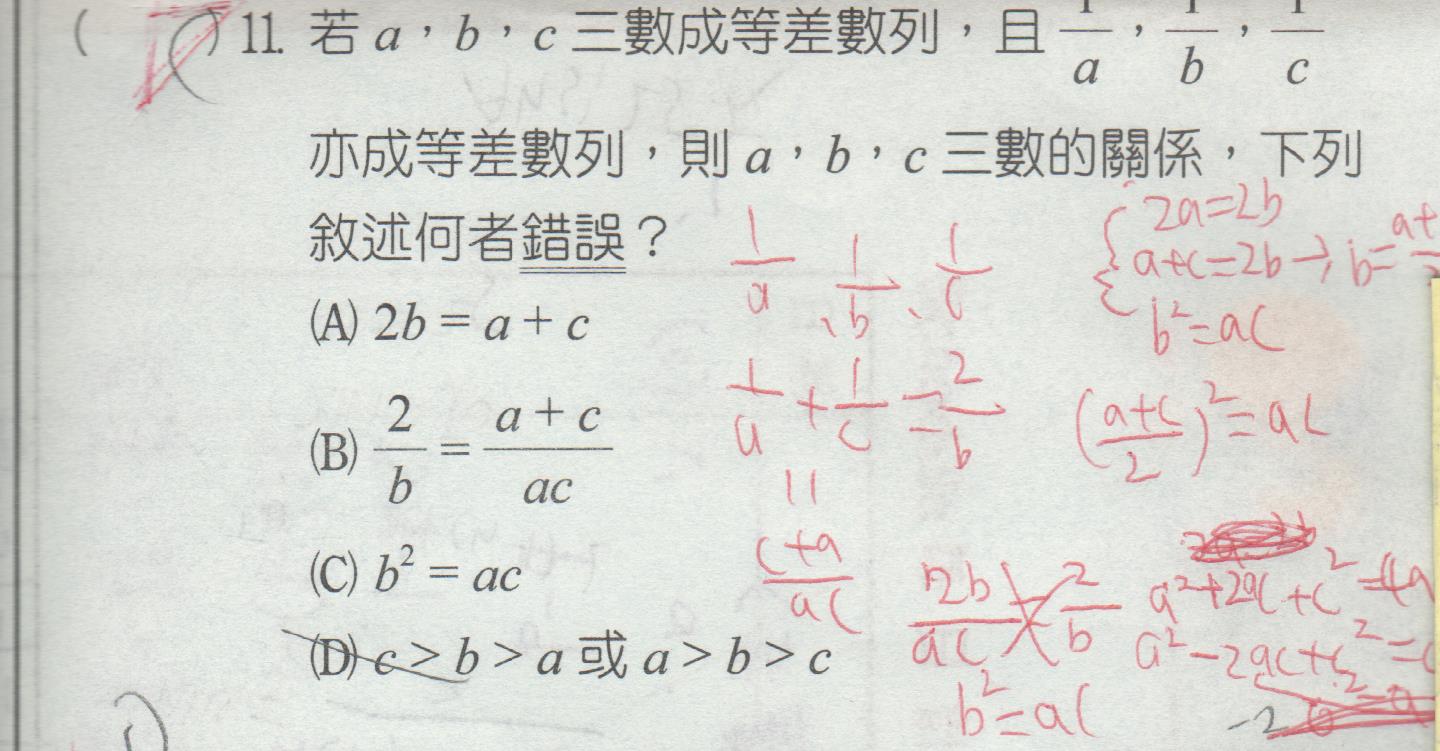 ( D ) 11. 若 a，b，c 三數成等差數列，且 1/a，1/b，1/c
亦成等差數列，則 a，b，c 三數的關係，下列
敘述何者錯誤？
(A) 2b = a + c
(B) 2/b = (a + c)/ac
(C) b² = ac
(D) c > b > a 或 a > b > c
1/a、1/b、1/c
1/a + 1/c = 2/b
=
(c+a)/ac
2b/ac = 2/b
b² = ac
2a=2b
a+c=2b → b=
b²=ac
((a+c)/2)² = ac
a²+2ac+c²=4a
a²-2ac+c²=